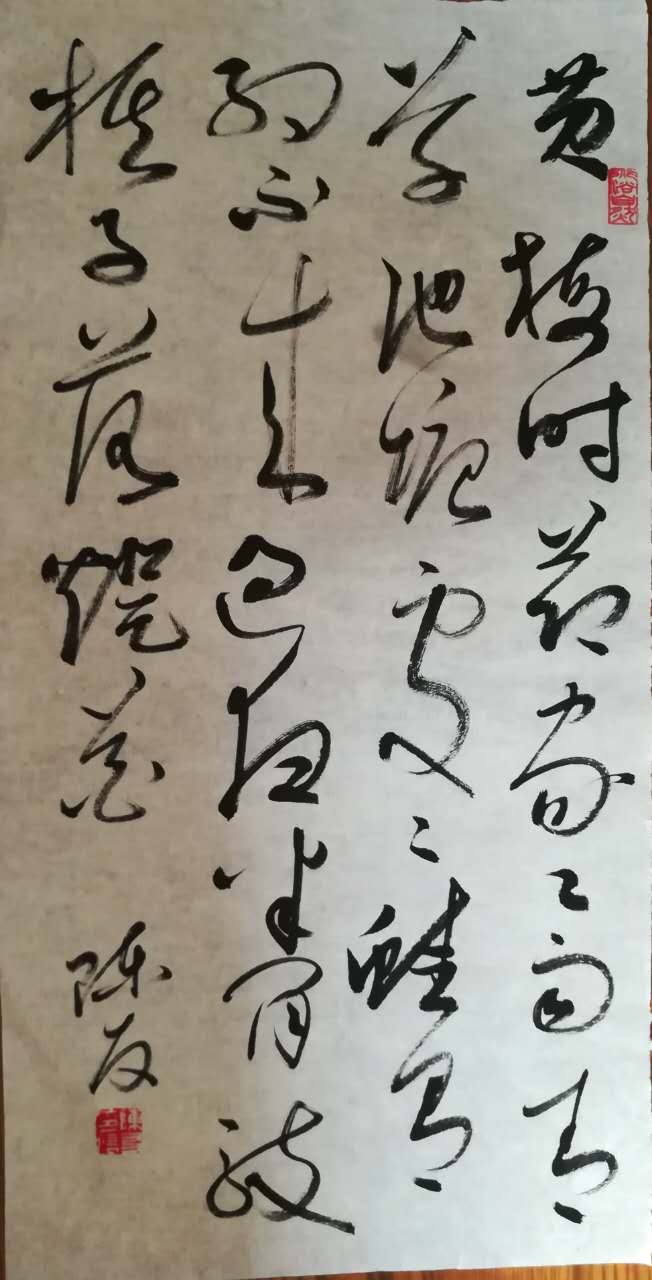 黄梅时节家〻雨青
草池塘处〻蛙有
约不来过夜半闲敲
棋子落燈花
陈友